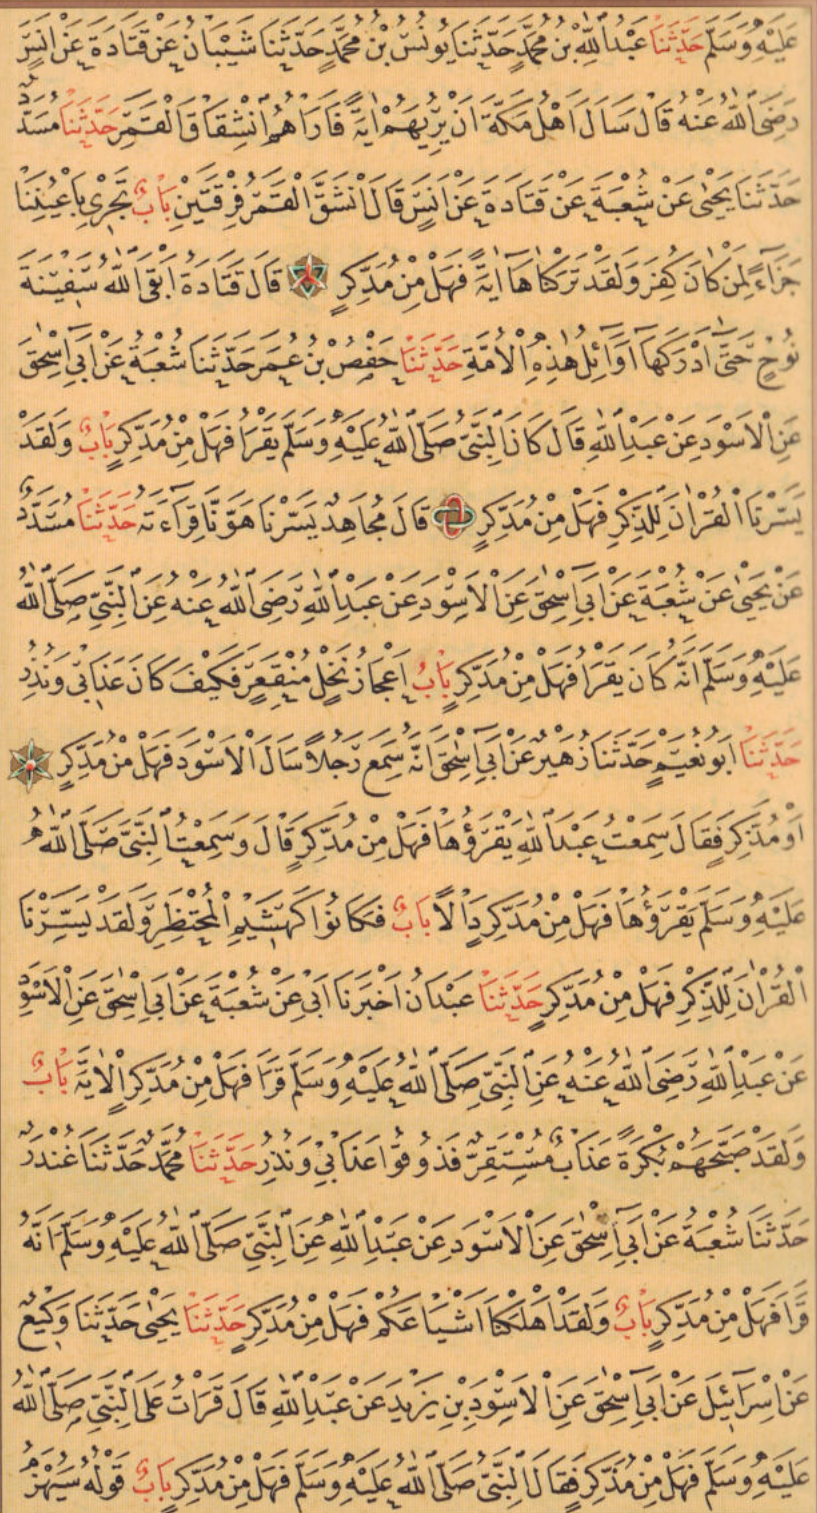 عَلَيْهِ وَسَلَّمَ حَدَّثَنَا عَبْدُ اللّٰهِ بْنُ مُحَمَّدٍ حَدَّثَنَا يُونُسُ بْنُ مُحَمَّدٍ حَدَّثَنَا شَيْبَانُ عَنْ قَتَادَةَ عَنْ اَنَسٍ
رَضِىَ اللّٰهُ عَنْهُ قَالَ سَاَلَ اَهْلُ مَكَّةَ اَنْ يُرِيَهُمْ اٰيَةً فَاَرَاهُمُ انْشِقَاقَ الْقَمَرِ حَدَّثَنَا مُسَدَّدٌ
حَدَّثَنَا يَحْيٰى عَنْ شُعْبَةَ عَنْ قَتَادَةَ عَنْ اَنَسٍ قَالَ انْشَقَّ الْقَمَرُ فِرْقَتَيْنِ بَابٌ تَجْرِى بِاَعْيُنِنَا
جَزَاءً لِمَنْ كَانَ كُفِرَ وَلَقَدْ تَرَكْنَاهَا اٰيَةً فَهَلْ مِنْ مُدَّكِرٍ قَالَ قَتَادَةُ اَبْقَى اللّٰهُ سَفِينَةَ
نُوحٍ حَتّٰى اَدْرَكَهَا اَوَائِلُ هٰذِهِ الْاُمَّةِ حَدَّثَنَا حَفْصُ بْنُ عُمَرَ حَدَّثَنَا شُعْبَةُ عَنْ اَبِى اِسْحٰقَ
عَنِ الْاَسْوَدِ عَنْ عَبْدِ اللّٰهِ قَالَ كَانَ النَّبِىُّ صَلَّى اللّٰهُ عَلَيْهِ وَسَلَّمَ يَقْرَاُ فَهَلْ مِنْ مُدَّكِرٍ بَابٌ وَلَقَدْ
يَسَّرْنَا الْقُرْاٰنَ لِلذِّكْرِ فَهَلْ مِنْ مُدَّكِرٍ قَالَ مُجَاهِدٌ يَسَّرْنَا هَوَّنَّا قِرَاءَتَهُ حَدَّثَنَا مُسَدَّدٌ
عَنْ يَحْيٰى عَنْ شُعْبَةَ عَنْ اَبِى اِسْحٰقَ عَنِ الْاَسْوَدِ عَنْ عَبْدِ اللّٰهِ رَضِىَ اللّٰهُ عَنْهُ عَنِ النَّبِىِّ صَلَّى اللّٰهُ
عَلَيْهِ وَسَلَّمَ اَنَّهُ كَانَ يَقْرَاُ فَهَلْ مِنْ مُدَّكِرٍ بَابٌ اَعْجَازُ نَخْلٍ مُنْقَعِرٍ فَكَيْفَ كَانَ عَذَابِى وَنُذُرِ
حَدَّثَنَا اَبُو نُعَيْمٍ حَدَّثَنَا زُهَيْرٌ عَنْ اَبِى اِسْحٰقَ اَنَّهُ سَمِعَ رَجُلاً سَاَلَ الْاَسْوَدَ فَهَلْ مِنْ مُدَّكِرٍ
اَوْ مُذَّكِرٍ فَقَالَ سَمِعْتُ عَبْدَ اللّٰهِ يَقْرَؤُهَا فَهَلْ مِنْ مُدَّكِرٍ قَالَ وَسَمِعْتُ النَّبِىَّ صَلَّى اللّٰهُ
عَلَيْهِ وَسَلَّمَ يَقْرَؤُهَا فَهَلْ مِنْ مُدَّكِرٍ دَالًا بَابٌ فَكَانُوا كَهَشِيمِ الْمُحْتَظِرِ وَلَقَدْ يَسَّرْنَا
الْقُرْاٰنَ لِلذِّكْرِ فَهَلْ مِنْ مُدَّكِرٍ حَدَّثَنَا عَبْدَانُ اَخْبَرَنَا اَبِى عَنْ شُعْبَةَ عَنْ اَبِى اِسْحٰقَ عَنِ الْاَسْوَدِ
عَنْ عَبْدِ اللّٰهِ رَضِىَ اللّٰهُ عَنْهُ عَنِ النَّبِىِّ صَلَّى اللّٰهُ عَلَيْهِ وَسَلَّمَ قَرَاَ فَهَلْ مِنْ مُدَّكِرٍ الْاٰيَةَ بَابٌ
وَلَقَدْ صَبَّحَهُمْ بُكْرَةً عَذَابٌ مُسْتَقِرٌّ فَذُوقُوا عَذَابِى وَنُذُرِ حَدَّثَنَا مُحَمَّدٌ حَدَّثَنَا غُنْدَرٌ
حَدَّثَنَا شُعْبَةُ عَنْ اَبِى اِسْحٰقَ عَنِ الْاَسْوَدِ عَنْ عَبْدِ اللّٰهِ عَنِ النَّبِىِّ صَلَّى اللّٰهُ عَلَيْهِ وَسَلَّمَ اَنَّهُ
قَرَاَ فَهَلْ مِنْ مُدَّكِرٍ بَابٌ وَلَقَدْ اَهْلَكْنَا اَشْيَاعَكُمْ فَهَلْ مِنْ مُدَّكِرٍ حَدَّثَنَا يَحْيٰى حَدَّثَنَا وَكِيعٌ
عَنْ اِسْرَائِيلَ عَنْ اَبِى اِسْحٰقَ عَنِ الْاَسْوَدِ بْنِ يَزِيدَ عَنْ عَبْدِ اللّٰهِ قَالَ قَرَاْتُ عَلَى النَّبِىِّ صَلَّى اللّٰهُ
عَلَيْهِ وَسَلَّمَ فَهَلْ مِنْ مُذَّكِرٍ فَقَالَ النَّبِىُّ صَلَّى اللّٰهُ عَلَيْهِ وَسَلَّمَ فَهَلْ مِنْ مُدَّكِرٍ بَابٌ قَوْلُهُ سَيُهْزَمُ